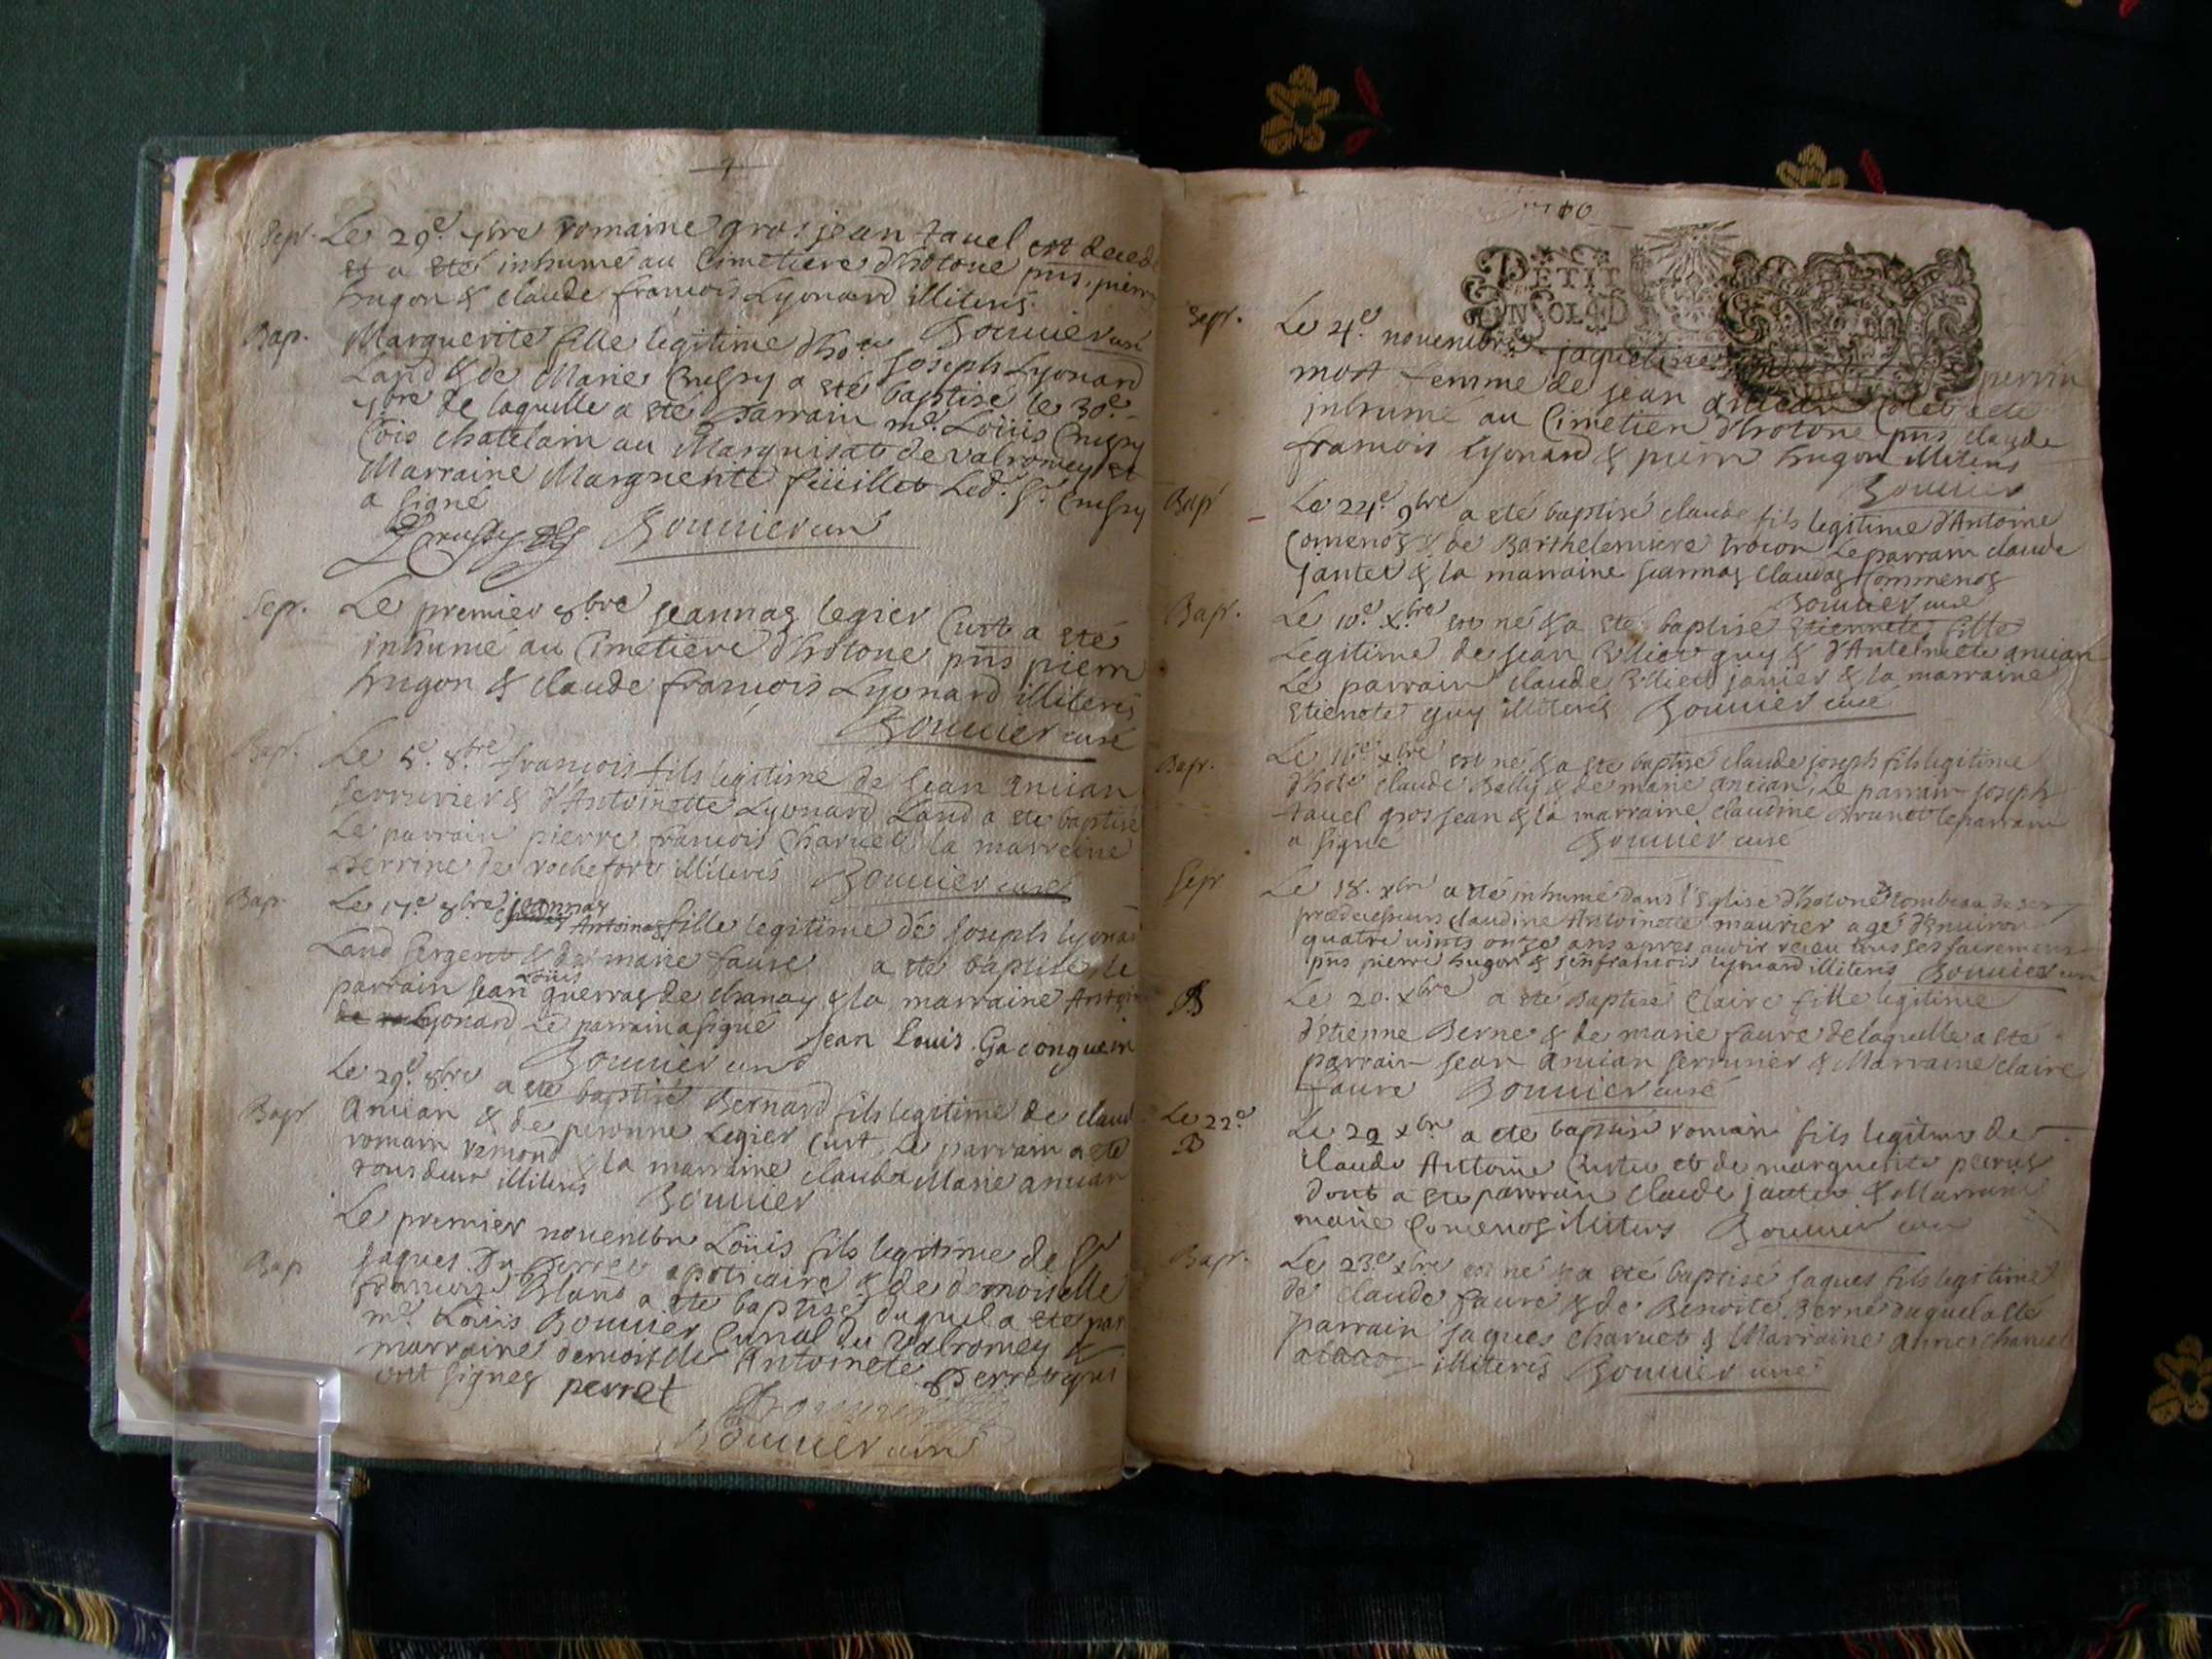 Sepr. Le 29e. 7bre romaine gros jean tavel est decede
et a eté inhumé au Cimetiere d'hotone pns. pierre
hugon & claude françois Lyonard illiterés.
Bouuier curé
Bap. Marguerite fille legitime d'ho. Joseph Lyonard
Land & de Marie Crussy a eté baptisé le 30e.
7bre de laquelle a eté parrain mr. Loüis Crussy
chatelain au Marquisat de valromey et
Marraine Marguerite füillet Led. Sr. Crussy
a signé
Crussy Bouuier curé
Sepr. Le premier 8bre Jeannaz legier Curt a eté
inhumé au Cimetiere d'hotone pns pierre
hugon & claude françois Lyonard illiterés
Bouuier curé
Bap. Le 5e. 8bre francois fils legitime de Jean anuian
serrurier & d'Antoinette Lyonard Land a eté baptisé
Le parrain pierre francois Charuet la marreine
perrine de rochefort illiterés Bouuier curé
Bap. Le 17e 8bre jeannaz
Antoinaz fille legitime de Joseph lyonar
Land sergent & de marie faure a eté baptisé le
parrain Jean Loüis guerraz de chanay & la marraine Antoin
Lyonard Le parrain a signé Jean Louis Gaconguein
Bouuier curé
Le 29e. 8bre a eté baptisé Bernard fils legitime de claud
Bapt anuian & de peronne Legier Curt, Le parrain a eté
romain remond & la marraine clauda Marie anuian
tous deux illiterés Bouuier
Le premier novembre Loüis fils legitime de Sr
Bap Jaques Du perret apoticaire & de demoiselle
françoise Blanc a eté baptisé duquel a eté par
mr. Loüis Bouuier Curial du Valromey &
marraine demoiselle Antoinete perret qui
ont signez perret
Bouuier
Bouuier curé
1710
PETIT
CONSOLD
Sepr. Le 4e. novembre jaqueline perrin
mort femme de Jean anuian Colet a eté
inhumé au Cimetiere d'hotone pns claude
francois Lyonard & pierre hugon illiterés
Bouuier
Bap Le 24e 9bre a eté baptisé claude fils legitime d'Antoine
Comenoz & de Barthelemiere trocon Le parrain claude
Jantet & la marraine Jeannaz Claudaz Commenoz
Bouuier curé
Bap. Le 10e. Xbre est né & a eté baptisé Etiennete fille
Legitime de Jean Billiet guy & d'Antelmete anuian
Le parrain claude Billiet janier & la marraine
Etienete guy illiterés Bouuier curé
Bap. Le 16e xbre est né & a eté baptisé claude joseph fils legitime
d'hote claude Belly & de marie anuian, Le parrain joseph
tavel gros Jean & la marraine claudine Brunet le parrain
a signé Bouuier curé
Sepr Le 18. xbre a eté inhumé dans l'Eglise d'hotone tombeau de ses
prædecesseurs claudine Antoinette maurier agé d'Enuiron
quatre uints onze ans apres auoir receu tous ses sacremens
pns pierre hugon & jean francois lyonard illiterés Bouuier curé
B Le 20. Xbre a eté Baptisé Claire fille legitime
d'Etienne Berne & de marie faure de laquelle a eté
parrain Jean anuian serrurier & Marraine claire
faure Bouuier curé
Le 22e
B Le 22 xbre a eté baptisé romain fils legitime de
Claude Antoine Curtet et de marguerite perret
dont a eté parrain claude jantet & Marraine
marie Comenoz illiterés Bouuier curé
Bap. Le 23e xbre est né & a eté baptisé Jaques fils legitime
de claude faure & de Benoite Berne duquel a eté
parrain Jaques charuet & Marraine anne charuet
illiterés Bouuier curé